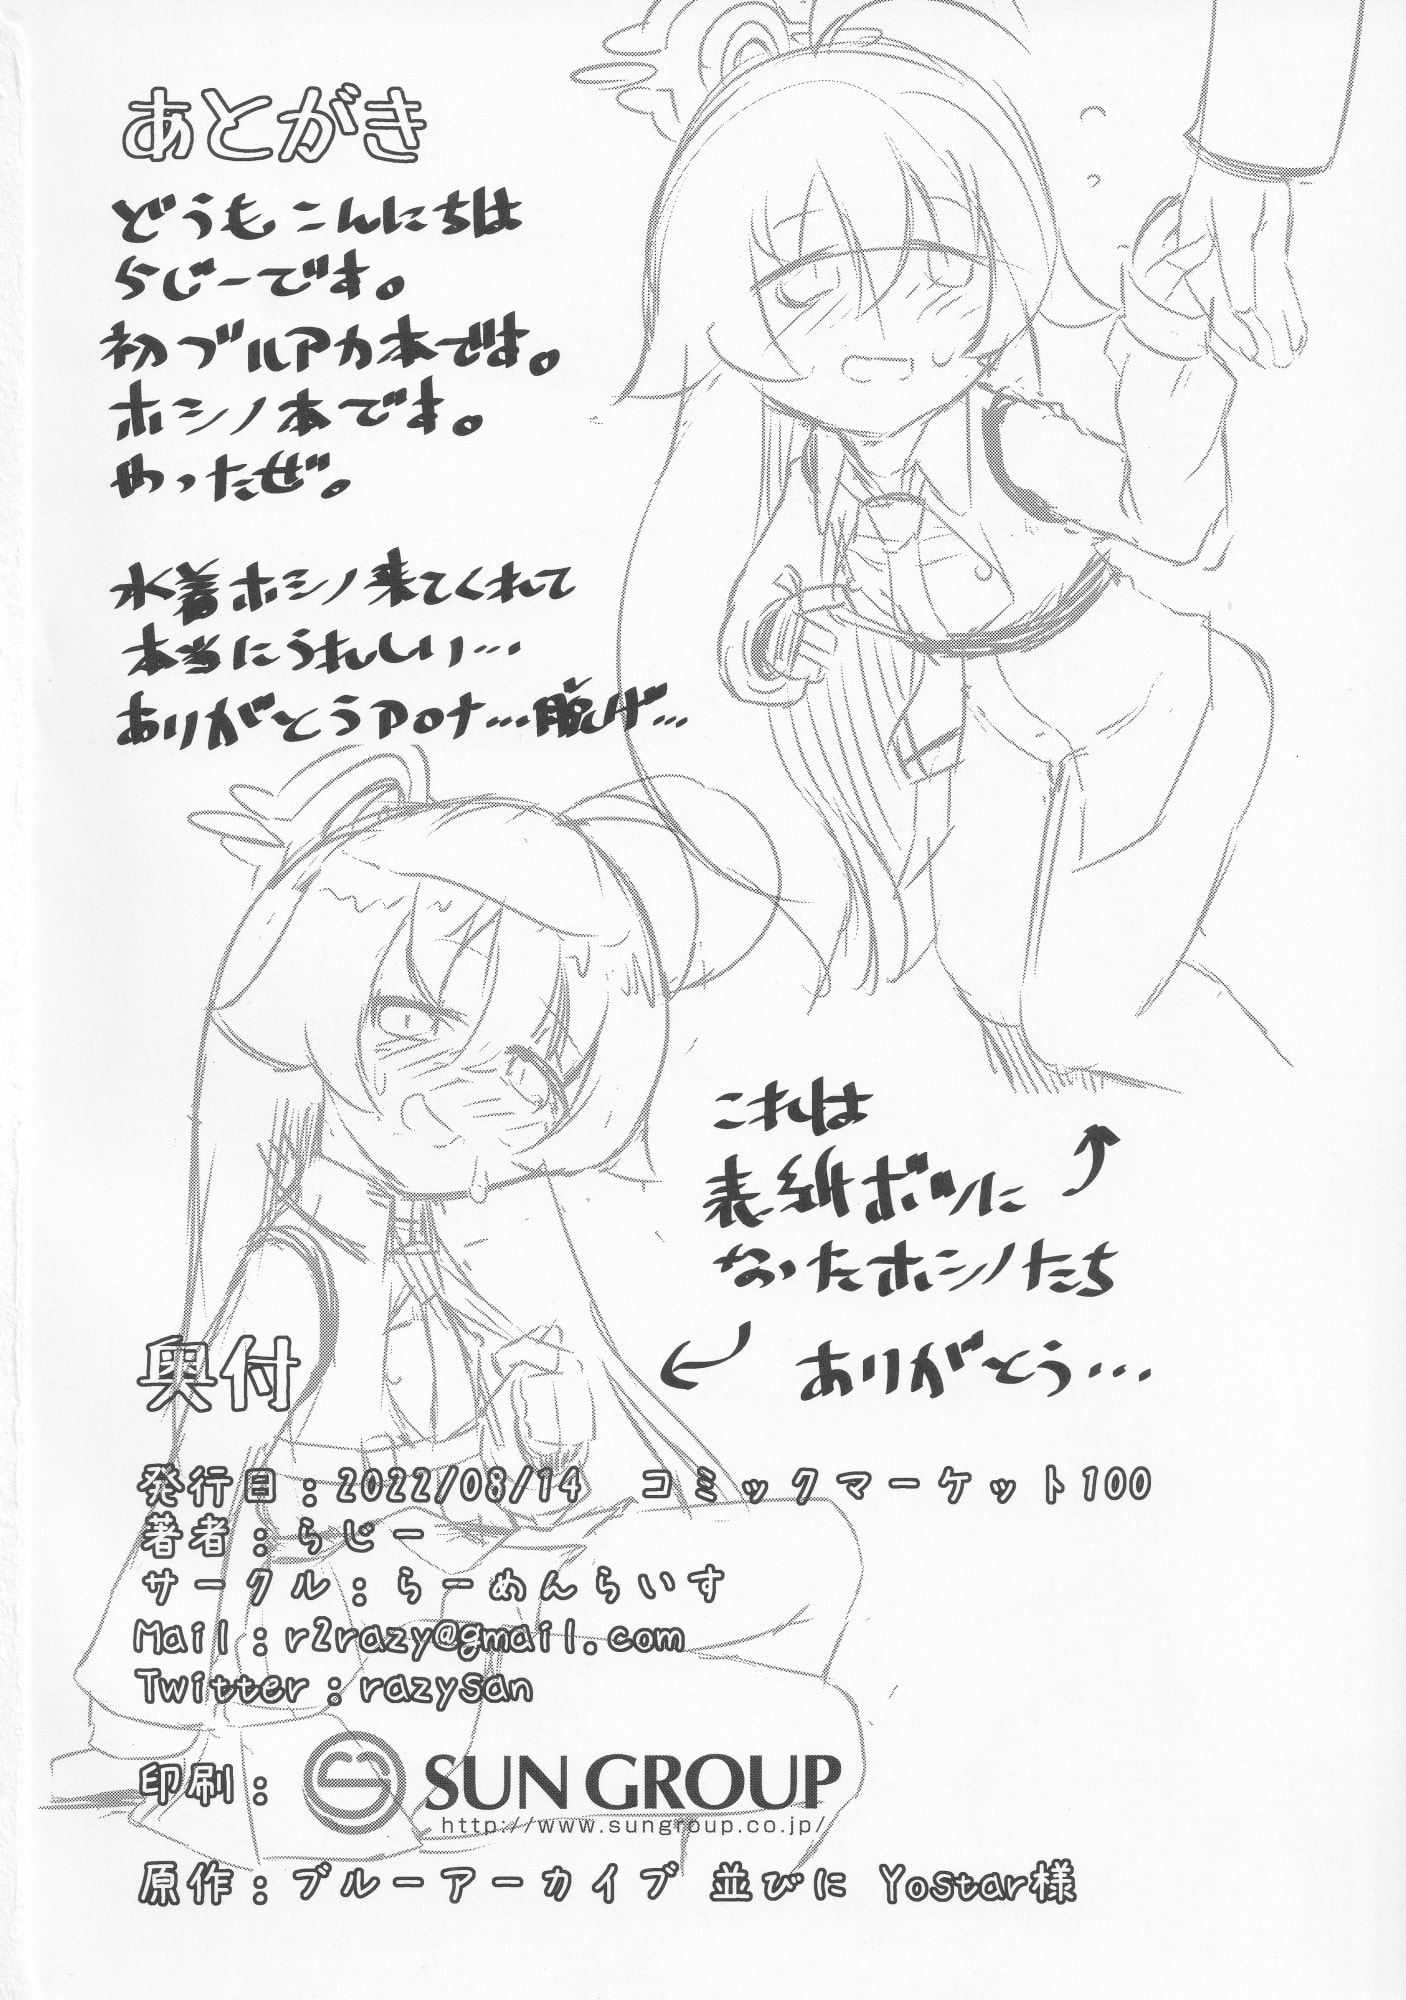 あとがき
どうもこんにちは
らじーです。
初ブルアカ本です。
ホシノ本です。
やったぜ。
水着ホシノ来てくれて
本当にうれしい…
ありがとうアロナ…脱げ…
これは
表紙ボツに
なったホシノたち
ありがとう…
奥付
発行日:2022/08/14 コミックマーケット100
著者:らじー
サークル:らーめんらいす
Mail:r2razy@gmail.com
Twitter:razysan
印刷: SUN GROUP
http://www.sungroup.co.jp/
原作:ブルーアーカイブ 並びに Yostar様